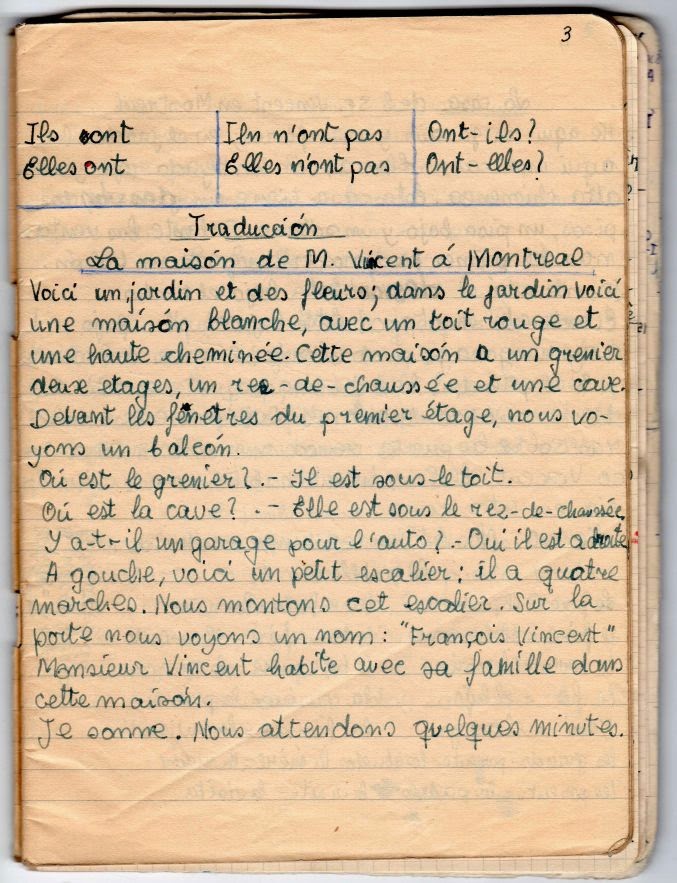 3
Ils ont | Iln n'ont pas | Ont-ils?
Elles ont | Elles n'ont pas | Ont-elles?
Traducción
La maisón de M. Vincent á Montreal
Voici un jardin et des fleurs; dans le jardin voici
une maisón blanche, avec un toit rouge et
une haute cheminée. Cette maisón a un grenier
deux etages, un rez-de-chaussée et une cave.
Devant les fenetres du premier étage, nous vo-
yons un balcón.
Oú est le grenier? .- Il est sous le toit.
Oú est la cave? .- Elle est sous le rez-de-chaussée,
Y a-t-il un garage pour l'auto? .- Oui il est a droite
A gauche, voici un petit escalier: il a quatre
marches. Nous montons cet escalier. Sur la
porte nous voyons un nom: "François Vincent"
Monsieur Vincent habite avec sa famille dans
cette maisón.
Je sonne. Nous attendons quelques minutes.